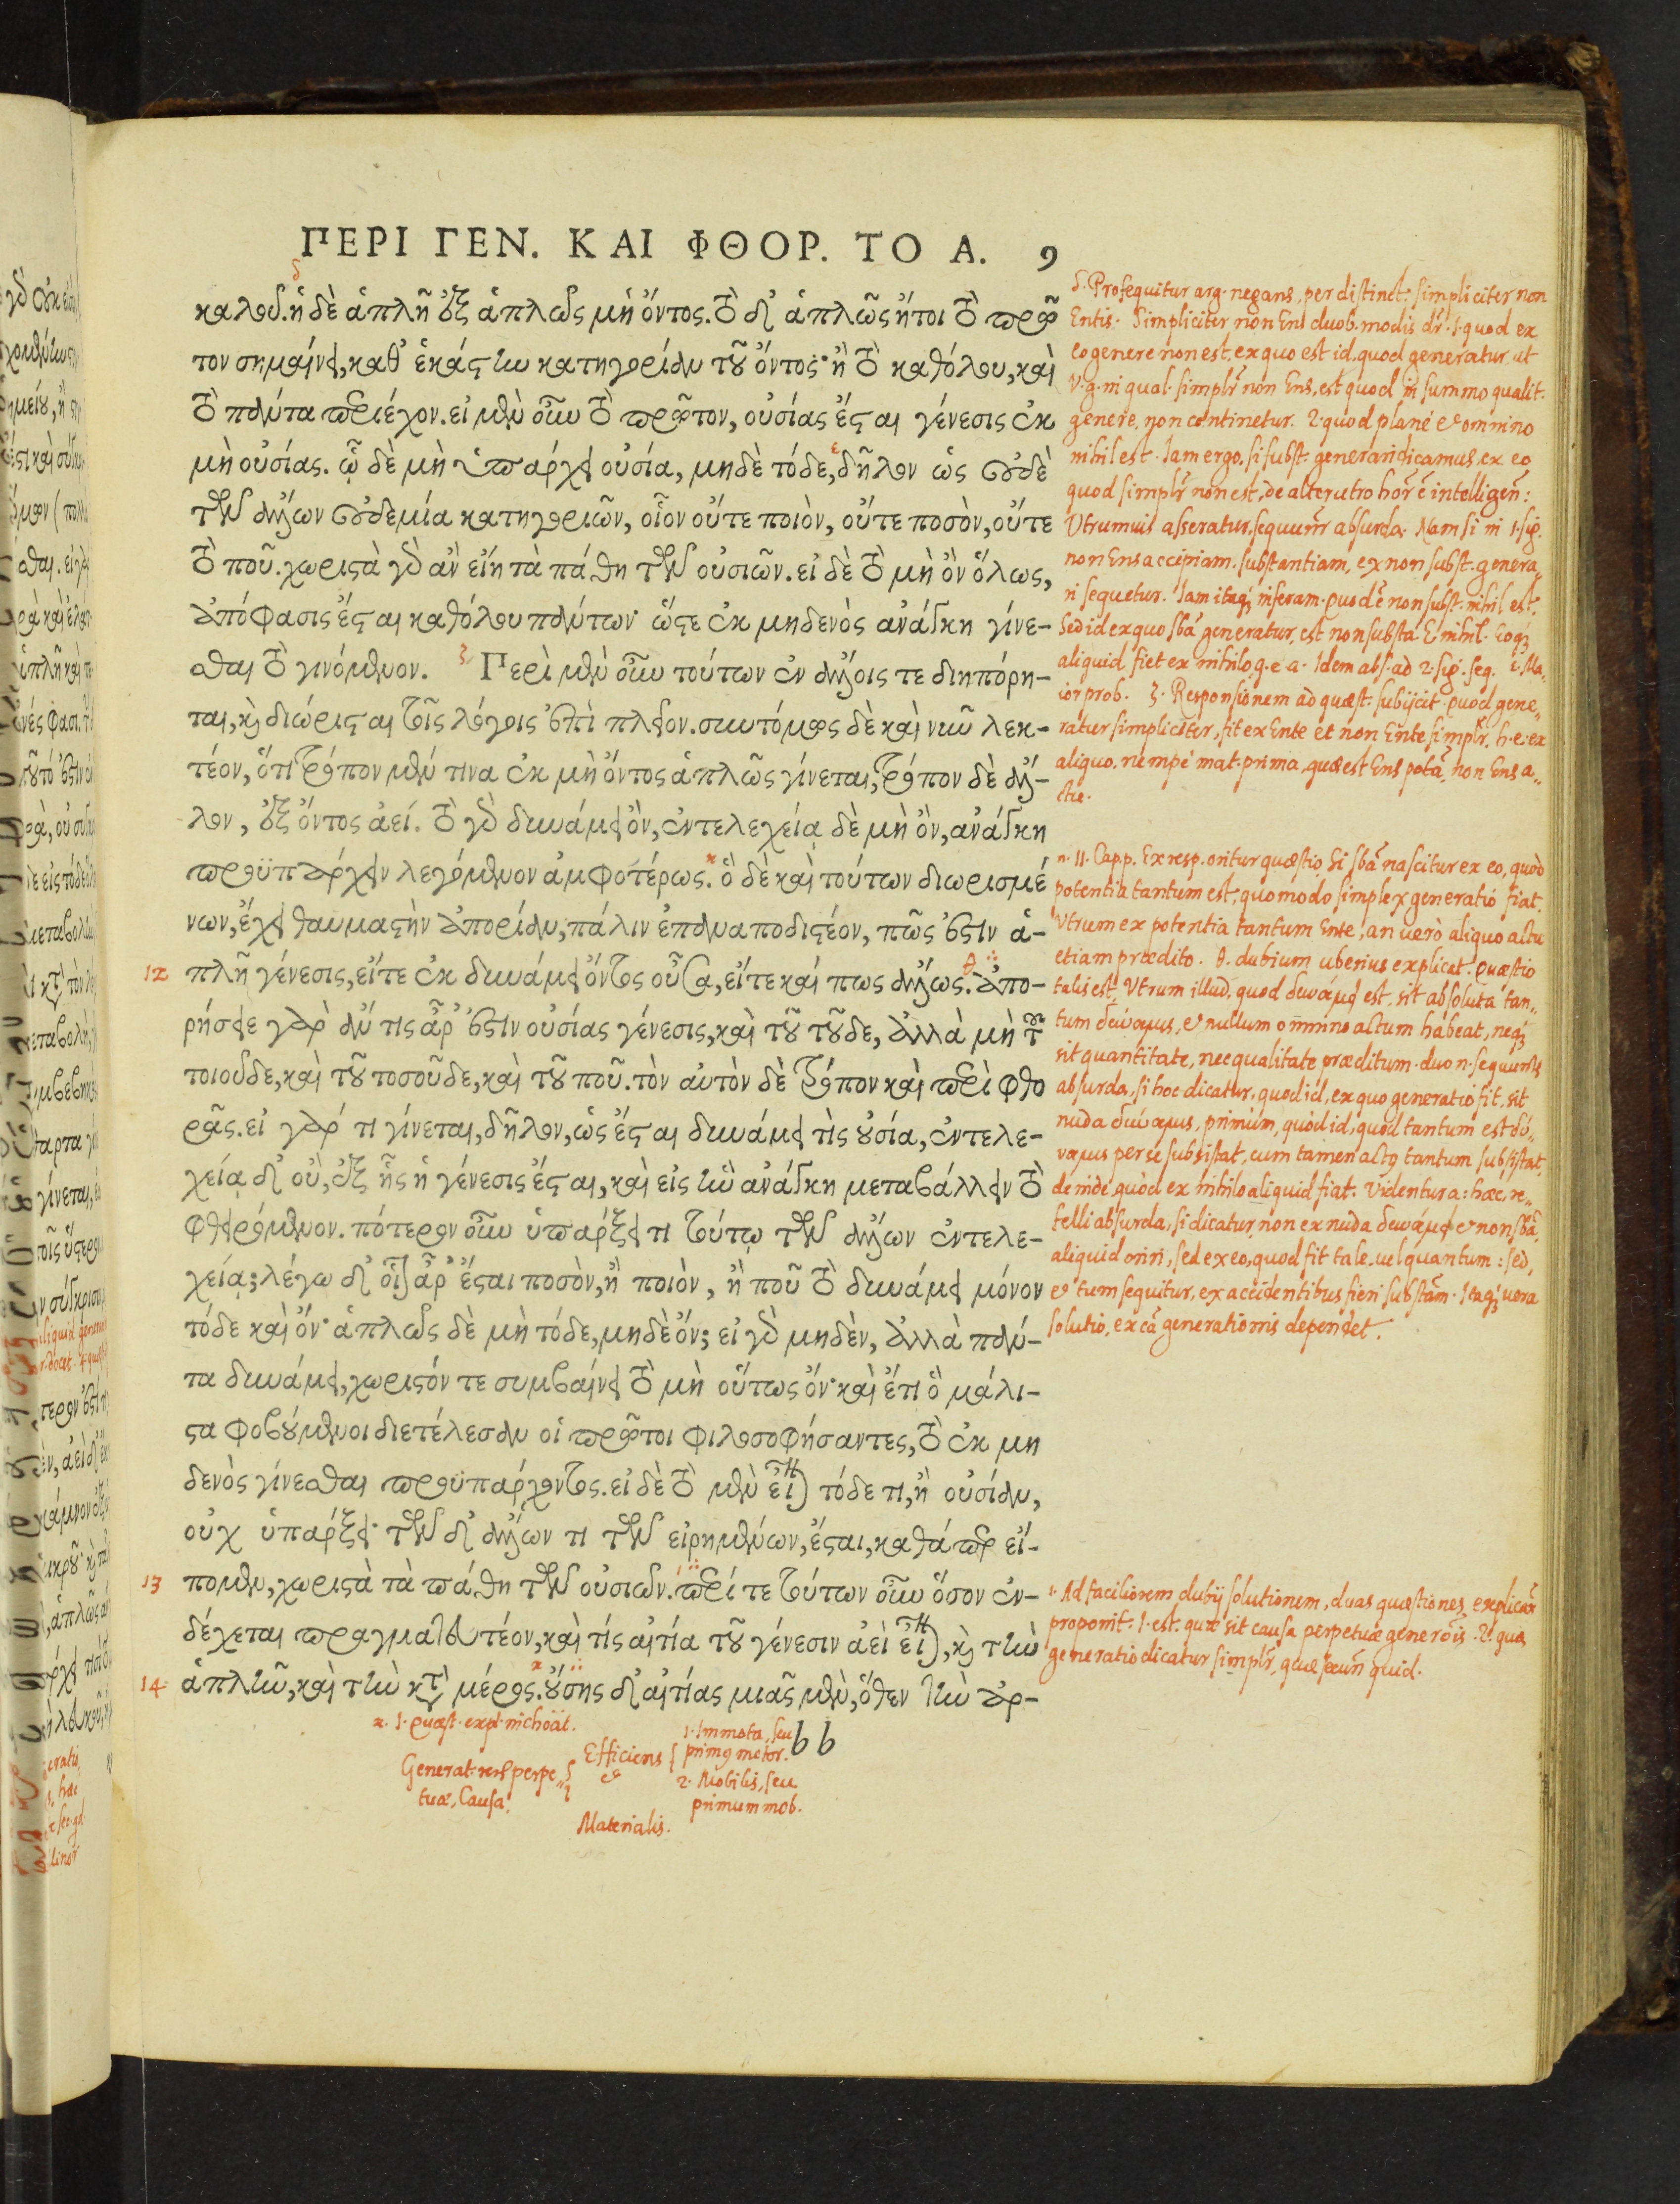 ΠΕΡΙ ΓΕΝ. ΚΑΙ ΦΘΟΡ. ΤΟ Α. 9
καλοῦ. ἡ δὲ ἁπλῆ ἐξ ἁπλῶς μὴ ὄντος. τὸ δ' ἁπλῶς ἤτοι τὸ πρῶ
τον σημαίνει, καθ' ἑκάστην κατηγορίαν τοῦ ὄντος· ἢ τὸ καθόλου, καὶ
τὸ πάντα περιέχον. εἰ μὲν οὖν τὸ πρῶτον, οὐσίας ἔσται γένεσις ἐκ
μὴ οὐσίας. ᾧ δὲ μὴ ὑπάρχει οὐσία, μηδὲ τόδε, δῆλον ὡς οὐδὲ
τῶν ἄλλων οὐδεμία κατηγοριῶν, οἷον οὔτε ποιὸν, οὔτε ποσὸν, οὔτε
τὸ ποῦ. χωριστὰ γὰρ ἂν εἴη τὰ πάθη τῶν οὐσιῶν. εἰ δὲ τὸ μὴ ὂν ὅλως,
ἀπόφασις ἔσται καθόλου πάντων· ὥστε ἐκ μηδενὸς ἀνάγκη γίνε-
σθαι τὸ γινόμενον. Περὶ μὲν οὖν τούτων ἐν ἄλλοις τε διηπόρη-
ται, καὶ διώρισται τοῖς λόγοις ἐπὶ πλεῖον. συντόμως δὲ καὶ νῦν λεκ-
τέον, ὅτι τρόπον μέν τινα ἐκ μὴ ὄντος ἁπλῶς γίνεται, τρόπον δὲ ἄλ-
λον, ἐξ ὄντος ἀεί. τὸ γὰρ δυνάμει ὂν, ἐντελεχείᾳ δὲ μὴ ὂν, ἀνάγκη
προϋπάρχειν λεγόμενον ἀμφοτέρως. ὃ δὲ καὶ τούτων διωρισμέ
νων, ἔχει θαυμαστὴν ἀπορίαν, πάλιν ἐπαναποδιστέον, πῶς ἐστιν ἁ-
12 πλῆ γένεσις, εἴτε ἐκ δυνάμει ὄντος οὖσα, εἴτε καί πως ἄλλως. ἀπο-
ρήσειε γὰρ ἄν τις ἆρ' ἐστὶν οὐσίας γένεσις, καὶ τοῦ τοῦδε, ἀλλὰ μὴ τοῦ
τοιοῦδε, καὶ τοῦ τοσοῦδε, καὶ τοῦ ποῦ. τὸν αὐτὸν δὲ τρόπον καὶ περὶ φθο
ρᾶς. εἰ γάρ τι γίνεται, δῆλον, ὡς ἔσται δυνάμει τὶς οὐσία, ἐντελε-
χείᾳ δ' οὐ, ἐξ ἧς ἡ γένεσις ἔσται, καὶ εἰς ἣν ἀνάγκη μεταβάλλειν τὸ
φθειρόμενον. πότερον οὖν ὑπάρξει τι τούτῳ τῶν ἄλλων ἐντελε-
χείᾳ; λέγω δ' οἷον ἆρ' ἔσται ποσὸν, ἢ ποιὸν, ἢ ποῦ τὸ δυνάμει μόνον
τόδε καὶ ὄν· ἁπλῶς δὲ μὴ τόδε, μηδὲ ὄν; εἰ γὰρ μηδὲν, ἀλλὰ πάν-
τα δυνάμει, χωριστόν τε συμβαίνει τὸ μὴ οὕτως ὄν· καὶ ἔτι ὃ μάλι-
στα φοβούμενοι διετέλεσαν οἱ πρῶτοι φιλοσοφήσαντες, τὸ ἐκ μη
δενὸς γίνεσθαι προϋπάρχοντος. εἰ δὲ τὸ μὲν εἶναι τόδε τι, ἢ οὐσίαν,
οὐχ ὑπάρξει· τῶν δ' ἄλλων τι τῶν εἰρημένων, ἔσται, καθάπερ εἴ-
13 πομεν, χωριστὰ τὰ πάθη τῶν οὐσιῶν. περί τε τούτων οὖν ὅσον ἐν-
δέχεται πραγματευτέον, καὶ τίς αἰτία τοῦ γένεσιν ἀεὶ εἶναι, καὶ τὴν
14 ἁπλῆν, καὶ τὴν κατὰ μέρος. οὔσης δ' αἰτίας μιᾶς μὲν, ὅθεν τὴν ἀρ-
b b
δ. Prosequitur arg. negans, per distinct. simpliciter non
Entis. Simpliciter non Ens duob. modis dr̃. 1. quod ex
eo genere non est, ex quo est id, quod generatur ut
v.g. in qual. simplr̃ non Ens, est quod in summo qualit.
genere, non continetur. 2. quod planè et omnino
nihil est. Iam ergo, si subst. generari dicamus ex eo
quod simplr̃ non est, de alterutro hor̃ ẽ intelligen̄:
Utrumuis asseratur, sequunt̃r absurda. Nam si in 1. sig.
non Ens accipiam, substantiam, ex non subst. genera„
ri sequetur. Iam itaq; inferam. Quod ẽ non subst. nihil est.
Sed id ex quo sbã generatur, est non substa. E nihil. Eoq;
aliquid fiet ex nihilo q. e a. Idem abs. ad 2. sig. seq. ε. Ma„
ior prob. ζ. Responsionem ad quæst. subijcit. Quod gene„
ratur simpliciter, fit ex Ente et non Ente simplr̃, h. e. ex
aliquo, nempe mat. prima, quæ est Ens potã, non Ens a„
ctu.
n. 11. Capp. Ex resp. oritur quæstio, Si sbã nascitur ex eo, quòd
potentia tantum est, quomodo simplex generatio fiat.
Vtrum ex potentia tantum Ente, an uerò aliquo actu
etiam prædito. θ. dubium uberius explicat. Quæstio
talis est, Vtrum illud, quod δυνάμει est, sit absoluta tan„
tum δύναμις, et nullum omnino actum habeat, neq;
sit quantitate, nec qualitate præditum. duo n. sequunt̃r
absurda, si hoc dicatur, quod id, ex quo generatio fit, sit
nuda δύναμις, primùm, quòd id, quod tantum est δύ„
ναμις per se subsistat, cum tamen actq tantum subsistat,
deinde, quòd ex nihilo aliquid fiat. Videntur a: hæc, re„
felli absurda, si dicatur, non ex nuda δυνάμει et non sbã,
aliquid oriri, sed ex eo, quod fit tale, uel quantum: sed,
et tum sequitur, ex accidentibus fieri substãm. Itaq; uera
solutio, ex cã generationis dependet.
ι. Ad faciliorem dubij solutionem, duas quæstiones explicar̃
proponit. 1. est. quæ sit causa perpetuæ gener̃ois. 2. quæ
generatio dicatur simplr̃, quæ secun̄ quid.
κ. 1. Quæst. expl. inchoat.
Generat. perpe„
tuæ, Causa,
Efficiens
et
Materialis.
1. Immota, seu
primq motor.
2. Mobilis, seu
primum mob.